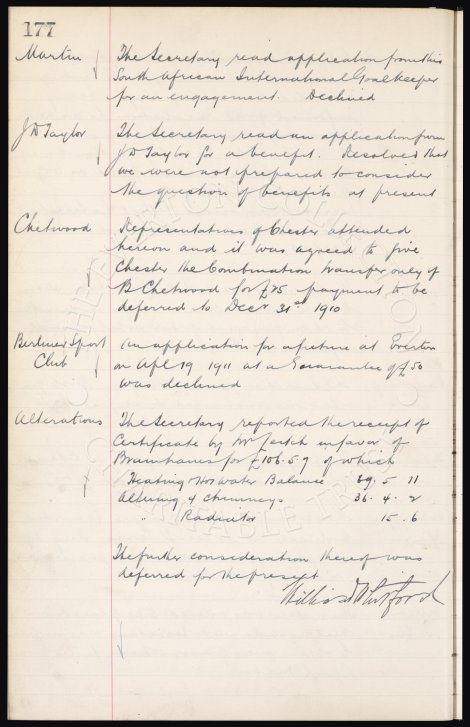 177
Martin The Secretary read application from this
South African International Goalkeeper
for an engagement. Declined
J D Taylor The Secretary read an application from
J D Taylor for a benefit. Resolved that
we were not prepared to consider
the question of benefits at present
Chetwood Representatives of Chester attended
hereon and it was agreed to give
Chester the Combination transfer only of
B Chetwood for £25 payment to be
deferred to Decr 31st 1910
Berliner Sport An application for a fixture at Everton
Club on Apl 19 1911 at a Guarantee of £50
was declined
Alterations The Secretary reported the receipt of
Certificate by Mr Leitch in favor of
for £106.5.9 of which
Heating & Hot water Balance 69.5.11
Altering 4 chimneys 36.4.2
" Radiator 15.6
The further consideration thereof was
deferred for the present
William Whitford